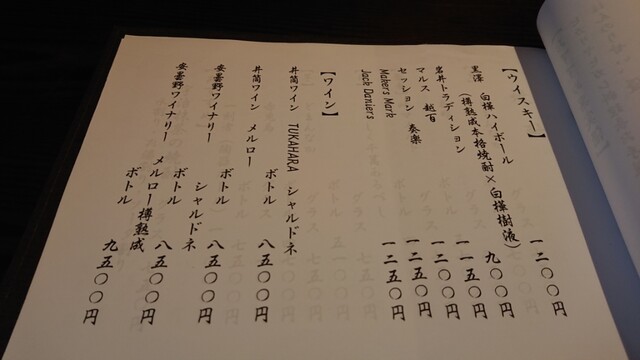 【ウイスキー】
黒澤 白樺ハイボール 一二〇〇円
(樽熟成本格焼酎×白樺樹液)
岩井トラディション 九〇〇円
マルス 越百 一一五〇円
セッション 奏楽 一二〇〇円
Makers Mark 一二五〇円
Jack Daniers 一二五〇円
【ワイン】
井筒ワイン TUKAHARA シャルドネ
ボトル 八五〇〇円
井筒ワイン メルロー
ボトル 八五〇〇円
安曇野ワイナリー シャルドネ
ボトル 八五〇〇円
安曇野ワイナリー メルロー樽熟成
ボトル 九五〇〇円